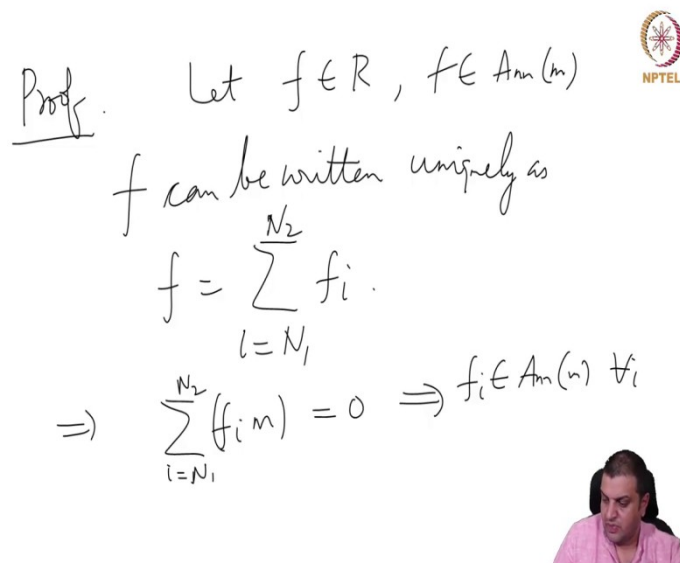 Proof. Let f ∈ R, f ∈ Ann(m)
f can be written uniquely as
f = ∑_{i=N₁}^{N₂} fᵢ.
⇒ ∑_{i=N₁}^{N₂} (fᵢ m) = 0 ⇒ fᵢ ∈ Ann(m) ∀i
NPTEL